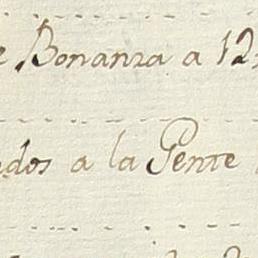 e Bonanza a 12
dos a la Gente